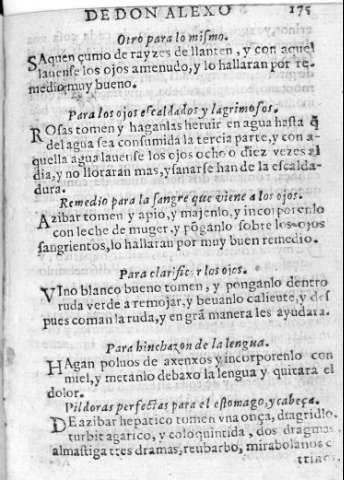 DE DON ALEXO 175
Otro para lo mismo.
SAquen çumo de rayzes de llanten, y con aquel
lauense los ojos amenudo, y lo hallaran por re-
medio muy bueno.
Para los ojos escaldados y lagrimosos.
ROsas tomen y haganlas heruir en agua hasta q̃
del agua sea consumida la tercia parte, y con a-
quella agua lauense los ojos ocho o diez vezes al
dia, y no lloraran mas, y sanarse han de la escalda-
dura.
Remedio para la sangre que viene a los ojos.
AZibar tomen y apio, y majenlo, y incorporenlo
con leche de muger, y põganlo sobre los ojos
sangrientos, lo hallaran por muy buen remedio.
Para clarificar los ojos.
VIno blanco bueno tomen, y ponganlo dentro
ruda verde a remojar, y beuanlo caliente, y des
pues coman la ruda, y en grã manera les ayudara.
Para hinchazon de la lengua.
HAgan poluos de axenxos y incorporenlo con
miel, y metanlo debaxo la lengua y quitara el
dolor.
Pildoras perfectas para el estomago, y cabeça.
DE azibar hepatico tomen vna onça, dragridio,
turbit agarico, y coloquintida, dos dragmas
almastiga tres dramas, reubarbo, mirabolanos c
trinos,